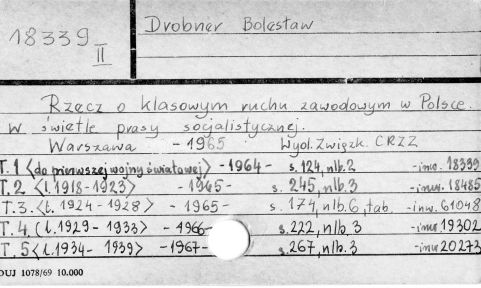 18339
II
Drobner Bolesław
Rzecz o klasowym ruchu zawodowym w Polsce.
w świetle prasy socjalistycznej.
Warszawa - 1965 Wyd. Związk. CRZZ
T. 1 <do pierwszej wojny światowej> - 1964 - s. 124, nlb. 2 - inw. 18339
T. 2 <l. 1918 - 1923> - 1965 - s. 245, nlb. 3 - inw. 18485
T. 3. <l. 1924 - 1928> - 1965 - s. 174, nlb. 6, tab. - inw. 61048
T. 4 (l. 1929 - 1933> - 1966 - s. 222, nlb. 3 - inw 19302
T. 5 <l. 1934 - 1939> - 1967 - s. 267, nlb. 3 - inw 20273
DUJ 1078/69 10.000